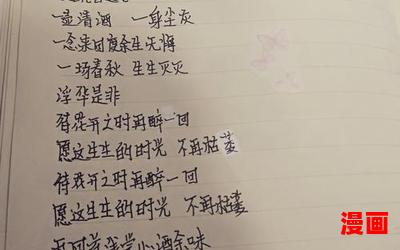 一壶清酒 一身尘灰
一念来回度余生无悔
一场春秋 生生灭灭
浮华是非
待花开之时再醉一回
愿这生生的时光 不再枯萎
待花开之时再醉一回
愿这生生的时光 不再枯萎
漫画